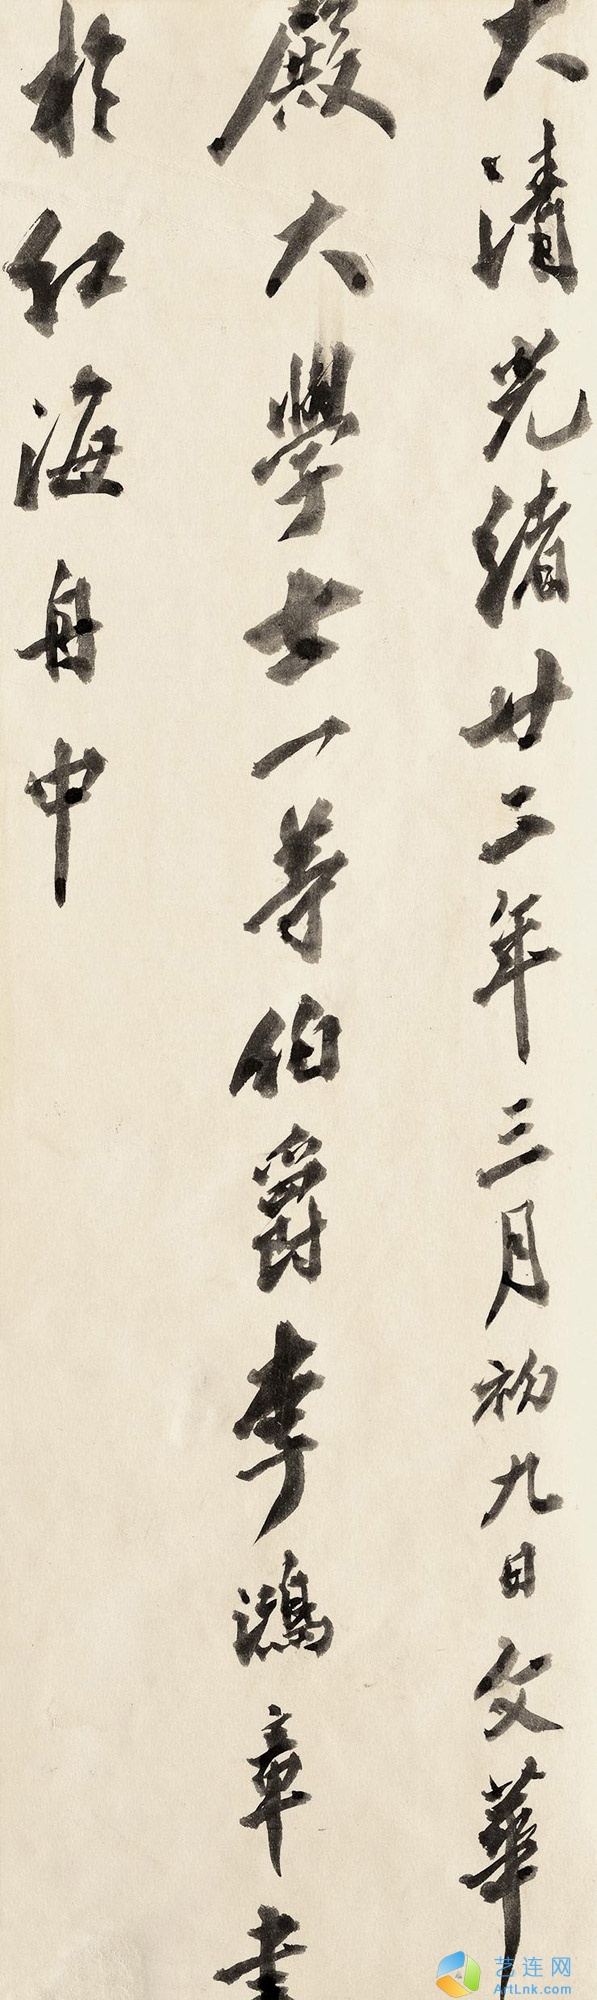 大清光緒廿二年三月初九日文華
殿大學士一等伯爵李鴻章書
於紅海舟中
艺连网
ArtLnk.com